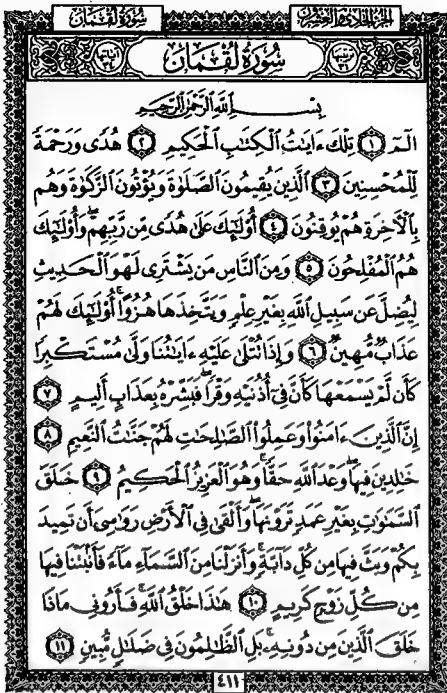 سُورَةُ لُقْمَان
الجزء الحادي والعشرون
سُورَةُ لُقْمَان
بِسْمِ اللَّهِ الرَّحْمَٰنِ الرَّحِيمِ
الٓمٓ ١ تِلْكَ ءَايَٰتُ ٱلْكِتَٰبِ ٱلْحَكِيمِ ٢ هُدًى وَرَحْمَةً
لِّلْمُحْسِنِينَ ٣ ٱلَّذِينَ يُقِيمُونَ ٱلصَّلَوٰةَ وَيُؤْتُونَ ٱلزَّكَوٰةَ وَهُم
بِٱلْءَاخِرَةِ هُمْ يُوقِنُونَ ٤ أُو۟لَٰٓئِكَ عَلَىٰ هُدًى مِّن رَّبِّهِمْ ۖ وَأُو۟لَٰٓئِكَ
هُمُ ٱلْمُفْلِحُونَ ٥ وَمِنَ ٱلنَّاسِ مَن يَشْتَرِى لَهْوَ ٱلْحَدِيثِ
لِيُضِلَّ عَن سَبِيلِ ٱللَّهِ بِغَيْرِ عِلْمٍ وَيَتَّخِذَهَا هُزُوًا ۚ أُو۟لَٰٓئِكَ لَهُمْ
عَذَابٌ مُّهِينٌ ٦ وَإِذَا تُتْلَىٰ عَلَيْهِ ءَايَٰتُنَا وَلَّىٰ مُسْتَكْبِرًا
كَأَن لَّمْ يَسْمَعْهَا كَأَنَّ فِىٓ أُذُنَيْهِ وَقْرًا ۖ فَبَشِّرْهُ بِعَذَابٍ أَلِيمٍ ٧
إِنَّ ٱلَّذِينَ ءَامَنُوا۟ وَعَمِلُوا۟ ٱلصَّٰلِحَٰتِ لَهُمْ جَنَّٰتُ ٱلنَّعِيمِ ٨
خَٰلِدِينَ فِيهَا ۖ وَعْدَ ٱللَّهِ حَقًّا ۚ وَهُوَ ٱلْعَزِيزُ ٱلْحَكِيمُ ٩ خَلَقَ
ٱلسَّمَٰوَٰتِ بِغَيْرِ عَمَدٍ تَرَوْنَهَا ۖ وَأَلْقَىٰ فِى ٱلْأَرْضِ رَوَٰسِىَ أَن تَمِيدَ
بِكُمْ وَبَثَّ فِيهَا مِن كُلِّ دَآبَّةٍ ۚ وَأَنزَلْنَا مِنَ ٱلسَّمَآءِ مَآءً فَأَنۢبَتْنَا فِيهَا
مِن كُلِّ زَوْجٍ كَرِيمٍ ١٠ هَٰذَا خَلْقُ ٱللَّهِ فَأَرُونِى مَاذَا
خَلَقَ ٱلَّذِينَ مِن دُونِهِۦ ۚ بَلِ ٱلظَّٰلِمُونَ فِى ضَلَٰلٍ مُّبِينٍ ١١
٤١١